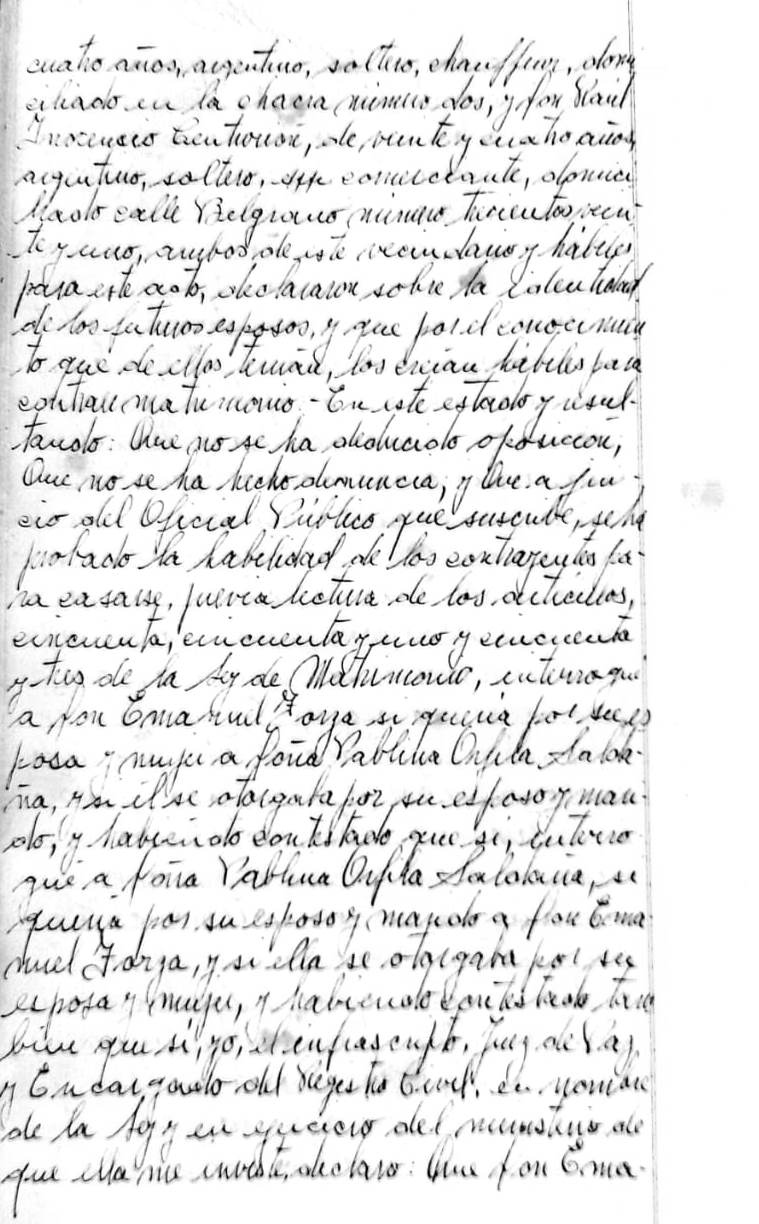 cuatro años, argentino, soltero, chauffeur, domi
ciliado en la chacra número dos, y don Raúl
Inocencio Centurión, de veinte y cuatro años,
argentino, soltero, comerciante, domici
liado calle Belgrano número trecientos vein
te y uno, ambos de este vecindario y hábiles
para este acto, declararon sobre la identidad
de los futuros esposos, y que por el conocimien
to que de ellos tenían, los creían hábiles para
contraer matrimonio.- En este estado y resul-
tando: Que no se ha deducido oposición,
Que no se ha hecho denuncia, y Que a jui-
cio del Oficial Público que suscribe, se ha
probado la habilidad de los contrayentes pa-
ra casarse, previa lectura de los artículos,
cincuenta, cincuenta y uno y cincuenta
y tres de la Ley de Matrimonio, interrogué
a don Emanuel Forza si quería por su es
posa y mujer a doña Pablina Orfila Salda-
ña, y si él se otorgaba por su esposo y mari-
do, y habiendo contestado que sí, interro
gué a doña Pablina Orfila Saldaña, si
quería por su esposo y marido a don Ema-
nuel Forza, y si ella se otorgaba por su
esposa y mujer, y habiendo contestado tam
bien que sí, yo, el infrascripto, Juez de Paz
y Encargado del Registro Civil, en nombre
de la Ley y en ejercicio del ministerio de
que ella me inviste, declaro: Que don Ema-